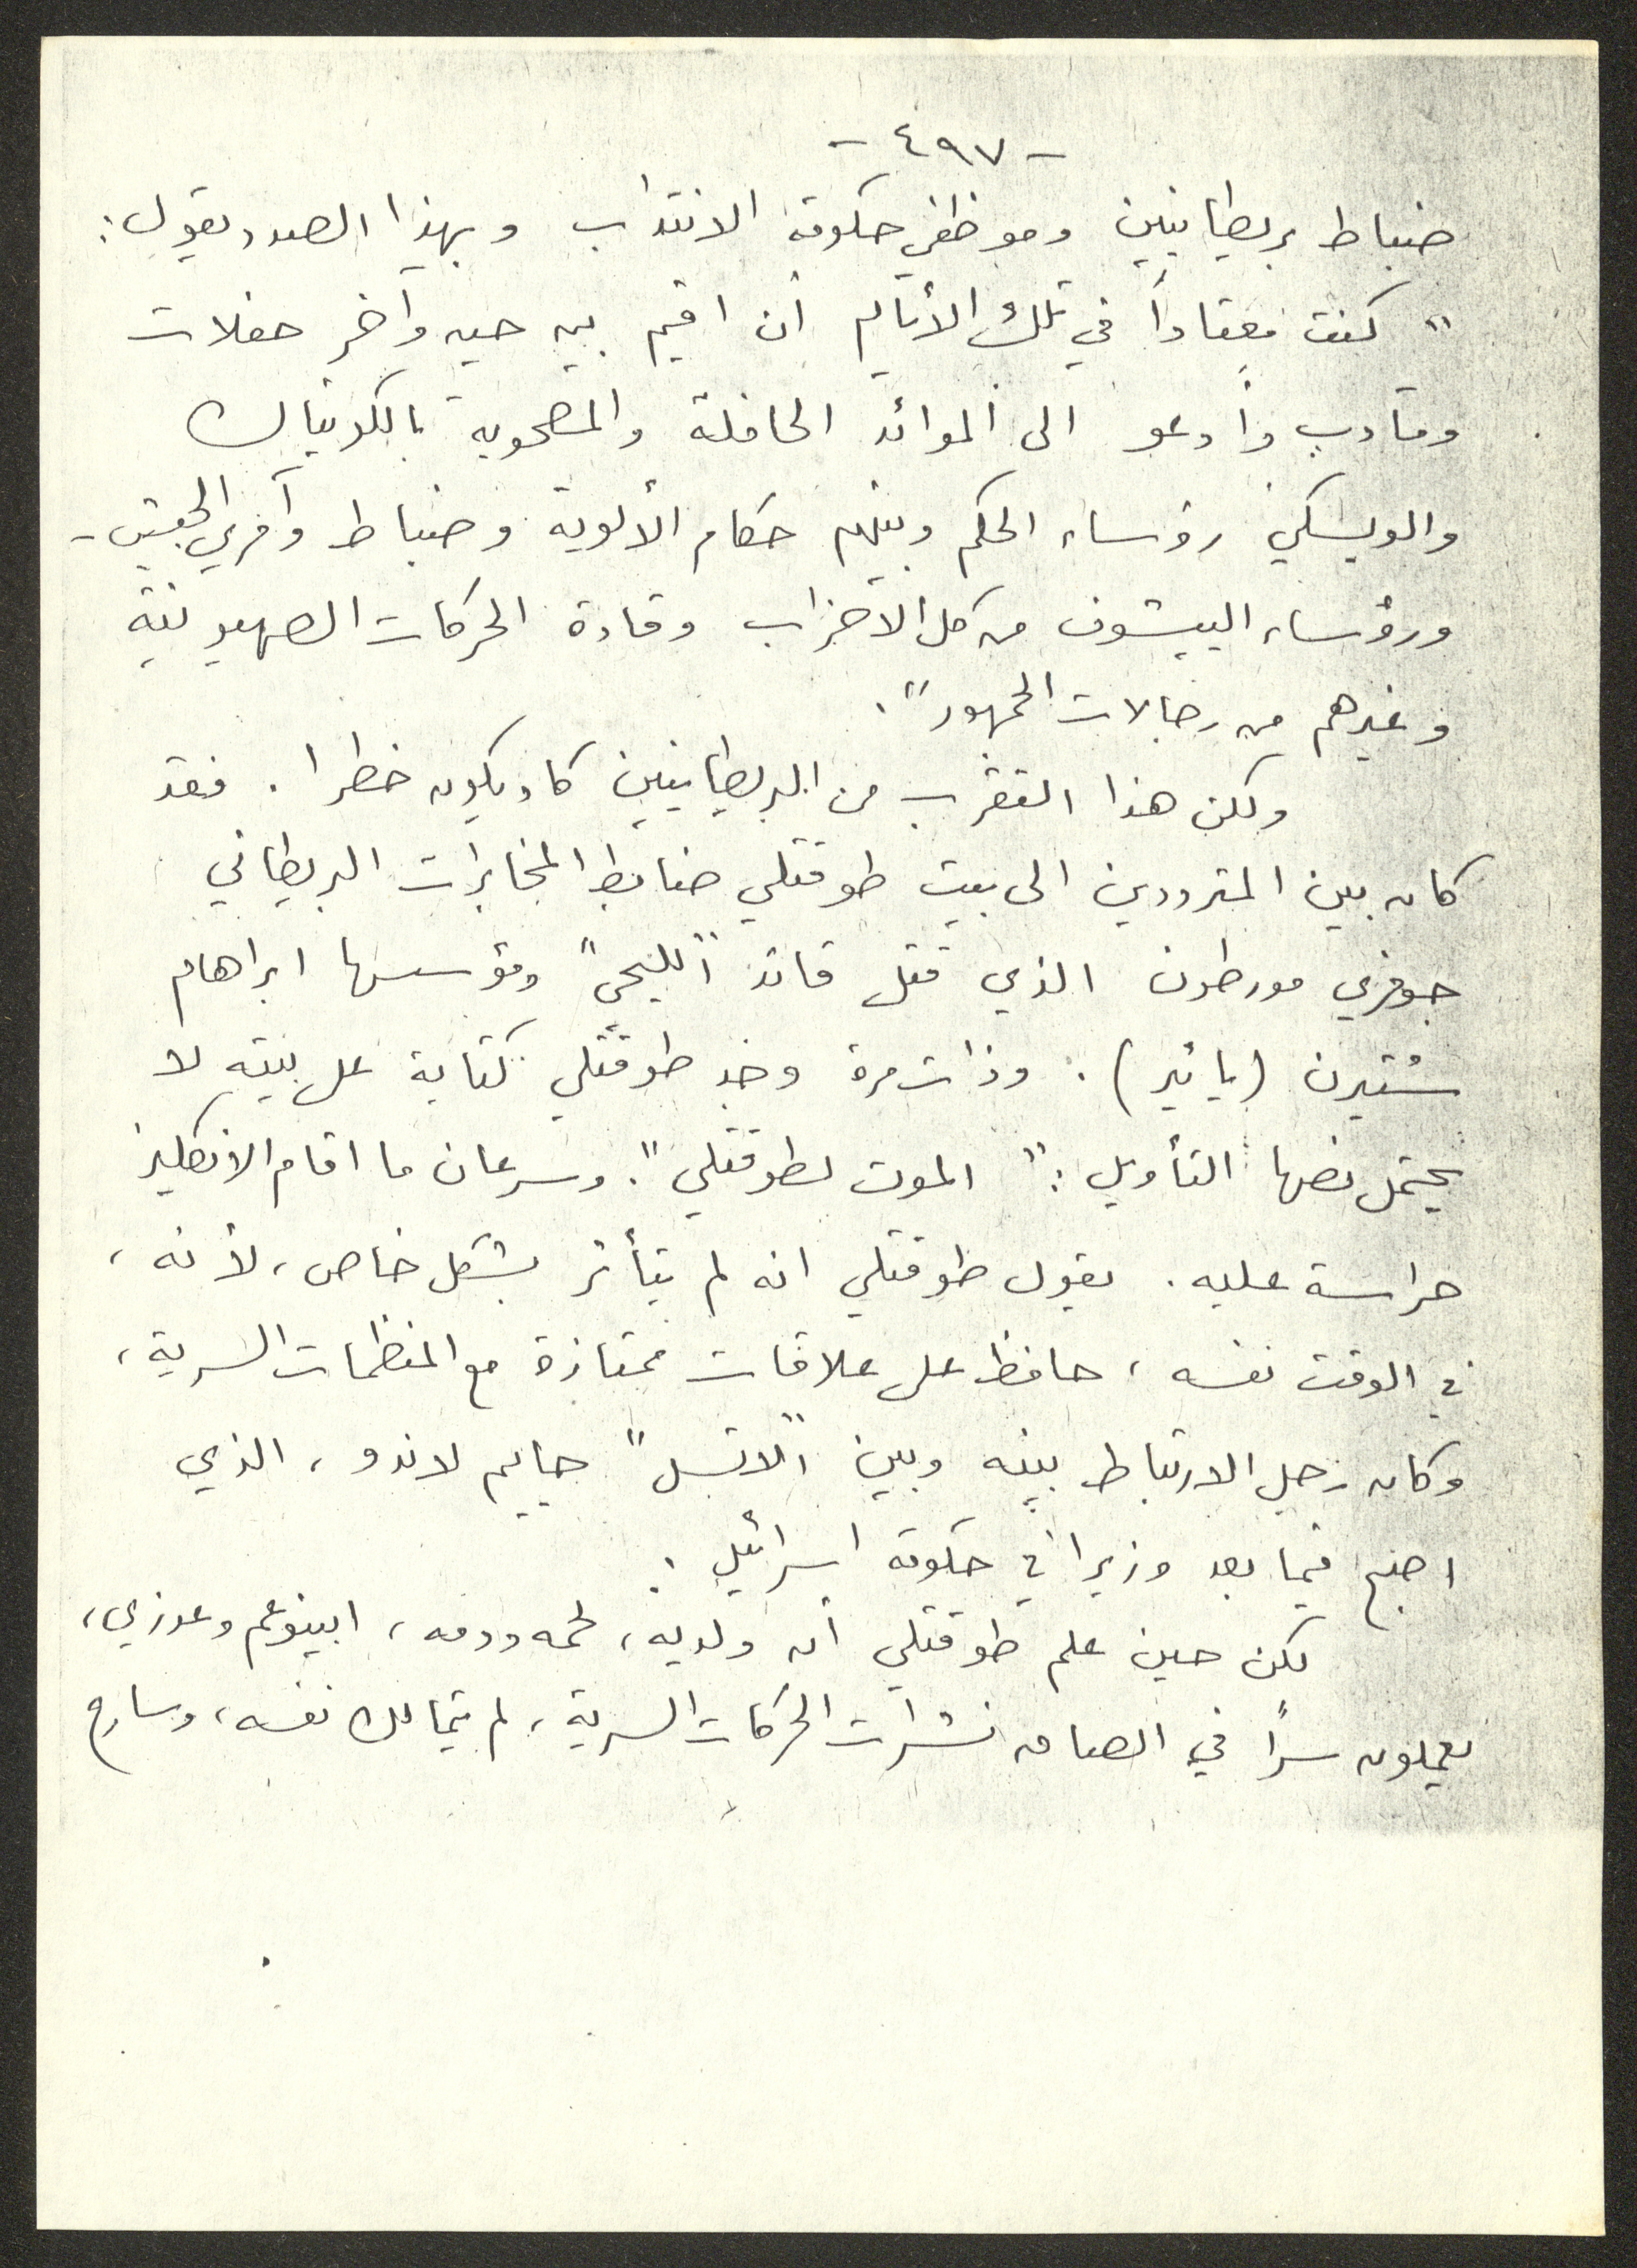 - ٤٩٧ -
ضباط بريطانيين وموظفي حكومة الانتداب وبهذا الصدد يقول:
" كنت معتاداً في تلك الأيام أن اقيم بين حين وآخر حفلات
ومآدب وأدعو الى الموائد الحافلة والمصحوبة بالكونياك
والويسكي رؤساء الحكم وبينهم حكام الألوية وضباط وآمري الجيش -
ورؤساء الييشوف من كل الأحزاب وقادة الحركات الصهيونية
وغيرهم من رجالات الجمهور".
ولكن هذا التقرب من البريطانيين كاد يكون خطرا. فقد
كان بين المترددين الى بيت طوقتلي ضابط المخابرات البريطاني
جوفري مورطون الذي قتل قائد "الليحي" ومؤسسها ابراهام
شتيرن (يائير). وذات مرة وجد طوقتلي كتابة على بيته لا
يحتمل نصها التأويل: "الموت لطوقتلي". وسرعان ما اقام الانكليز
حراسة عليه. يقول طوقتلي انه لم يتأثر بشكل خاص، لأنه،
في الوقت نفسه، حافظ على علاقات ممتازة مع المنظمات السرية،
وكان رجل الارتباط بينه وبين "الاتسل" حاييم لاندو، الذي
اصبح فيما بعد وزيرا في حكومة اسرائيل.
لكن حين علم طوقتلي أن ولديه، لحمه ودمه، ابينوعم وعوزي،
يعملون سراً في الصاق نشرات الحركات السرية، لم يتمالك نفسه، وسارع